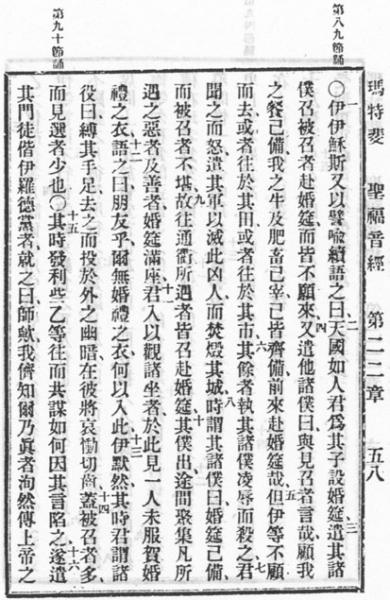 第八九節誦
第九十節誦
瑪特斐 聖福音經 第二二章 五八
〇一伊伊穌斯又以譬喻續語之曰二天國如人君爲其子設婚筵三遣其諸
僕召被召者赴婚筵而皆不願來四又遣他諸僕曰與見召者言哉顧我
之餐已備我之牛及肥畜已宰已皆齊備前來赴婚筵哉五但伊等不顧
而去或者往於其田或者往於其市六其餘者執其諸僕凌辱而殺之七君
聞之而怒遣其軍以滅此凶人而焚燬其城八時謂其諸僕曰婚筵已備
而被召者不堪九故往通衢所遇者皆召赴婚筵十其僕出途間聚集凡所
遇之惡者及善者婚筵滿座十一君入以觀諸坐者於此見一人未服賀婚
禮之衣十二語之曰朋友乎爾無婚禮之衣何以入此伊默然十三其時君謂諸
役曰縛其手足去之而投於外之幽暗在彼將哀慟切齒十四蓋被召者多
而見選者少也〇十五其時發利些乙等往而共謀如何因其言陷之十六遂遣
其門徒偕伊羅德黨者就之曰師歟我儕知爾乃眞者洵然傳上帝之